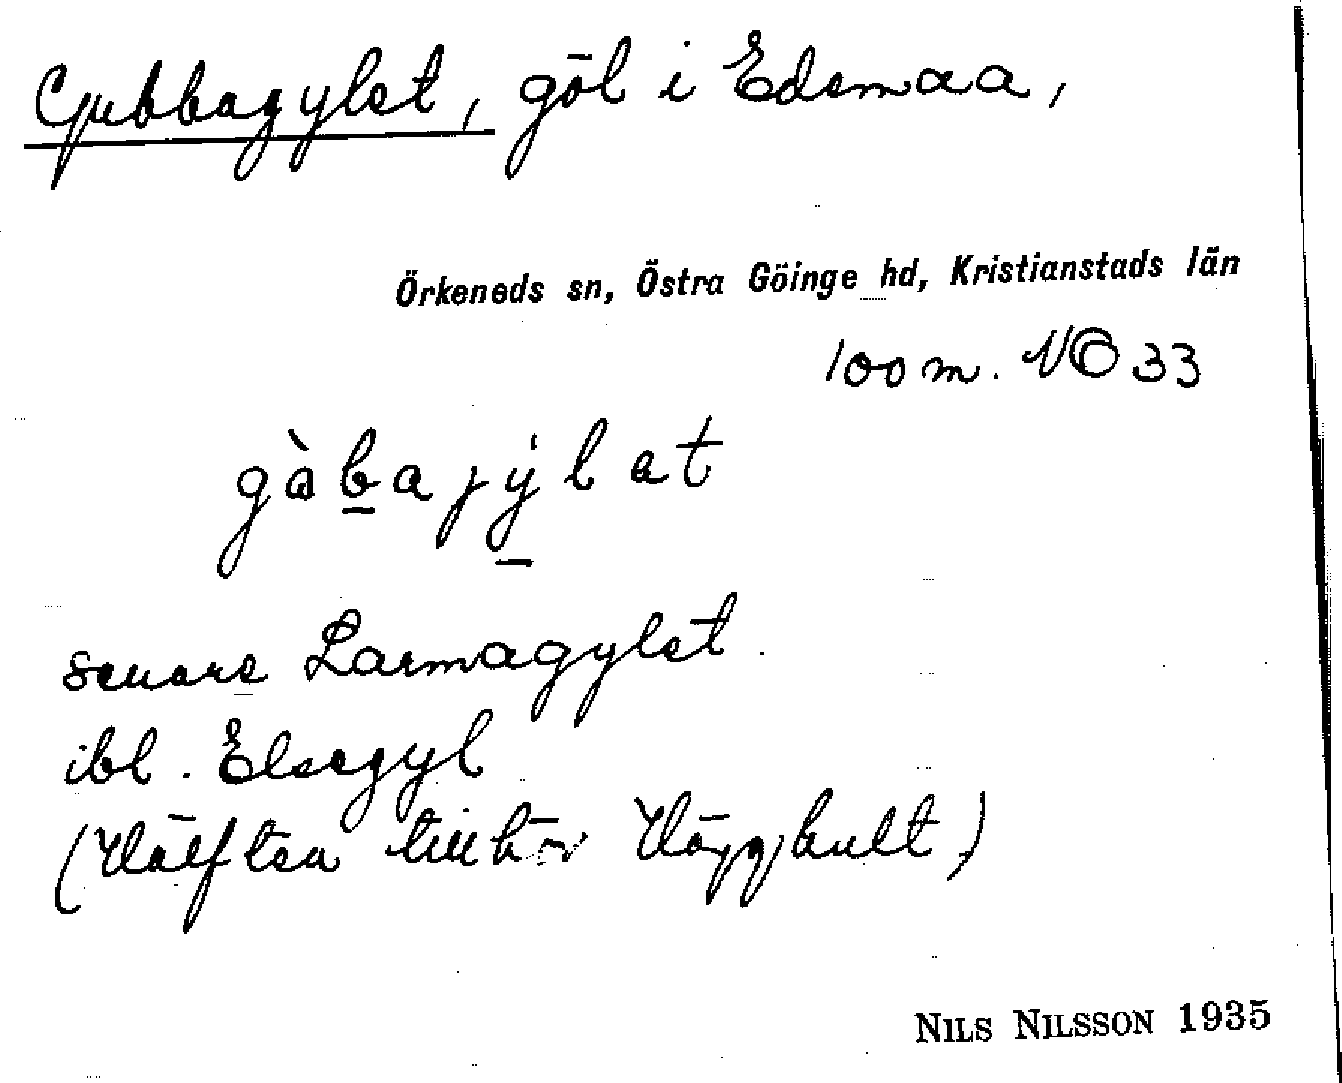 Gubbagylet, göl i Edemaa,
Örkeneds sn, Östra Göinge hd, Kristianstads län
100 m. NO 33
gàbajýlat
senare Larmagylet.
ibl. Elsegyl
(Hälften tillhör Hägghult)
NILS NILSSON 1935